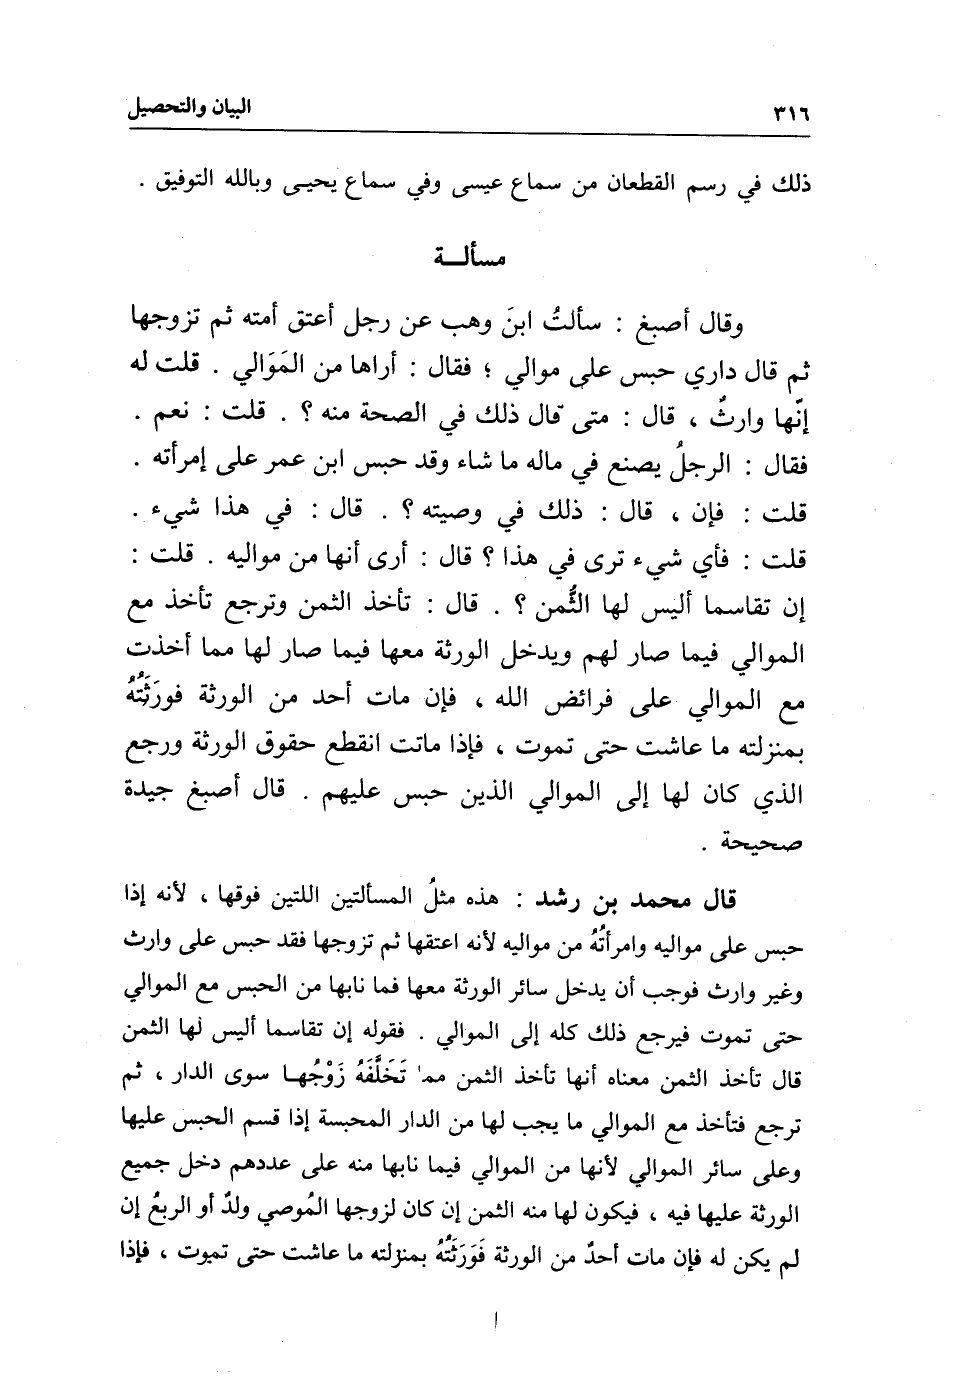 ٣١٦ البيان والتحصيل
ذلك في رسم القطعان من سماع عيسى وفي سماع يحيـى وبالله التوفيق .
مسألــة
وقال أصبغ : سألتُ ابنَ وهب عن رجل أعتق أمته ثم تزوجها
ثم قال داري حبس على موالي ؛ فقال : أراها من المَوَالي . قلت له
إنّها وارثٌ ، قال : متى قال ذلك في الصحة منه ؟ . قلت : نعم .
فقال : الرجلُ يصنع في ماله ما شاء وقد حبس ابن عمر على إمرأته .
قلت : فإن ، قال : ذلك في وصيته ؟ . قال : في هذا شيء .
قلت : فأي شيء ترى في هذا ؟ قال : أرى أنها من مواليه . قلت :
إن تقاسما أليس لها الثُّمن ؟ . قال : تأخذ الثمن وترجع تأخذ مع
الموالي فيما صار لهم ويدخل الورثة معها فيما صار لها مما أخذت
مع الموالي على فرائض الله ، فإن مات أحد من الورثة فورَثَتُهُ
بمنزلته ما عاشت حتى تموت ، فإذا ماتت انقطع حقوق الورثة ورجع
الذي كان لها إلى الموالي الذين حبس عليهم . قال أصبغ جيدة
صحيحة .
قال محمد بن رشد : هذه مثلُ المسألتين اللتين فوقها ، لأنه إذا
حبس على مواليه وامرأتُهُ من مواليه لأنه اعتقها ثم تزوجها فقد حبس على وارث
وغير وارث فوجب أن يدخل سائر الورثة معها فما نابها من الحبس مع الموالي
حتى تموت فيرجع ذلك كله إلى الموالي . فقوله إن تقاسما أليس لها الثمن
قال تأخذ الثمن معناه أنها تأخذ الثمن مما تَخَلَّفَهُ زَوْجُهـا سوى الدار ، ثم
ترجع فتأخذ مع الموالي ما يجب لها من الدار المحبسة إذا قسم الحبس عليها
وعلى سائر الموالي لأنها من الموالي فيما نابها منه على عددهم دخل جميع
الورثة عليها فيه ، فيكون لها منه الثمن إن كان لزوجها المُوصي ولدٌ أو الربعُ إن
لم يكن له فإن مات أحدٌ من الورثة فَوَرَثَتُهُ بمنزلته ما عاشت حتى تموت ، فإذا